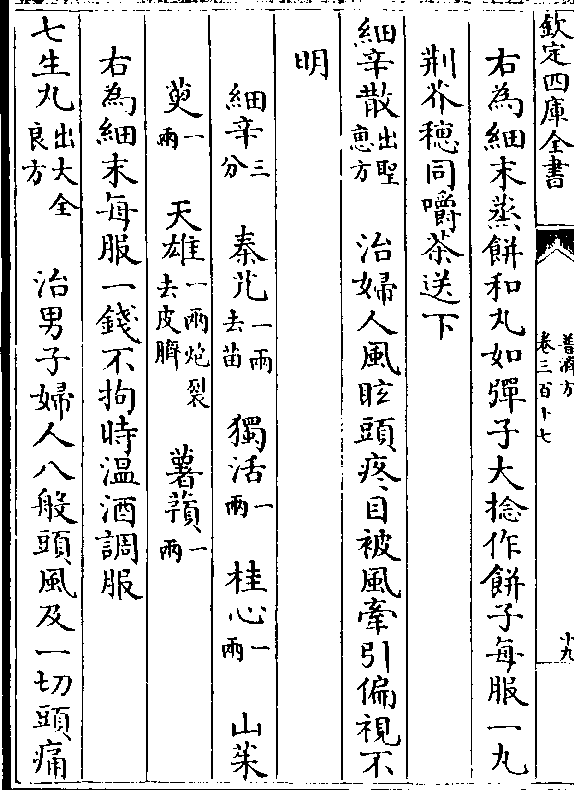 欽定四庫全書
普濟方
卷三百十七
十九
右為細末蒸餅和丸如彈子大捻作餅子每服一丸
荆芥穗同嚼茶送下
細辛散出聖惠方 治婦人風眩頭疼目被風牽引偏視不
明
細辛三分 秦艽一兩去苗 獨活一兩 桂心一兩 山茱
萸一兩 天雄一兩炮裂去皮臍 薯蕷一兩
右為細末每服一錢不拘時温酒調服
七生丸出大全良方 治男子婦人八般頭風及一切頭痛